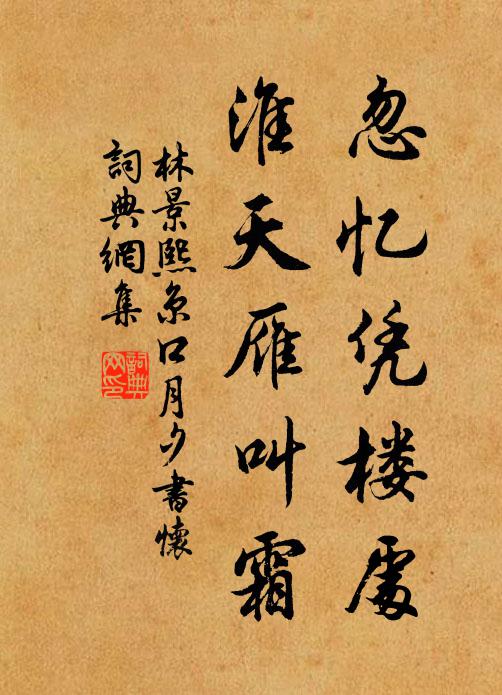 忽忆凭楼处
淮天雁叫霜
林景熙京口月夕書懷
詞典網集
詞典網印